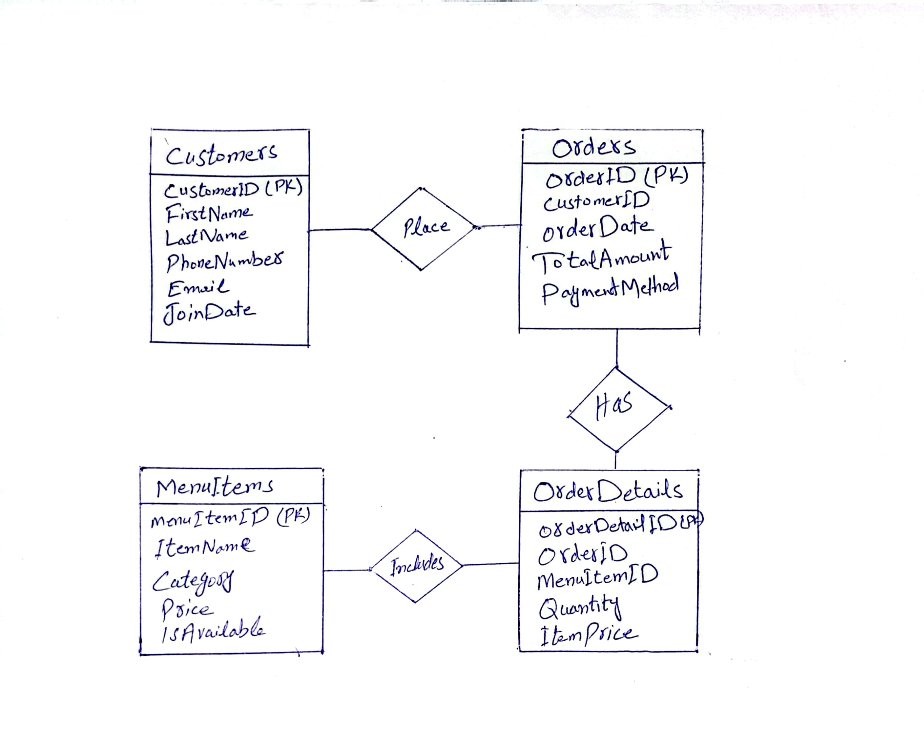 Customers
CustomerID (PK)
FirstName
LastName
PhoneNumber
Email
JoinDate
Place
Orders
OrderID (PK)
CustomerID
OrderDate
TotalAmount
PaymentMethod
Has
MenuItems
MenuItemID (PK)
ItemName
Category
Price
IsAvailable
Includes
OrderDetails
OrderDetailID (PK)
OrderID
MenuItemID
Quantity
ItemPrice